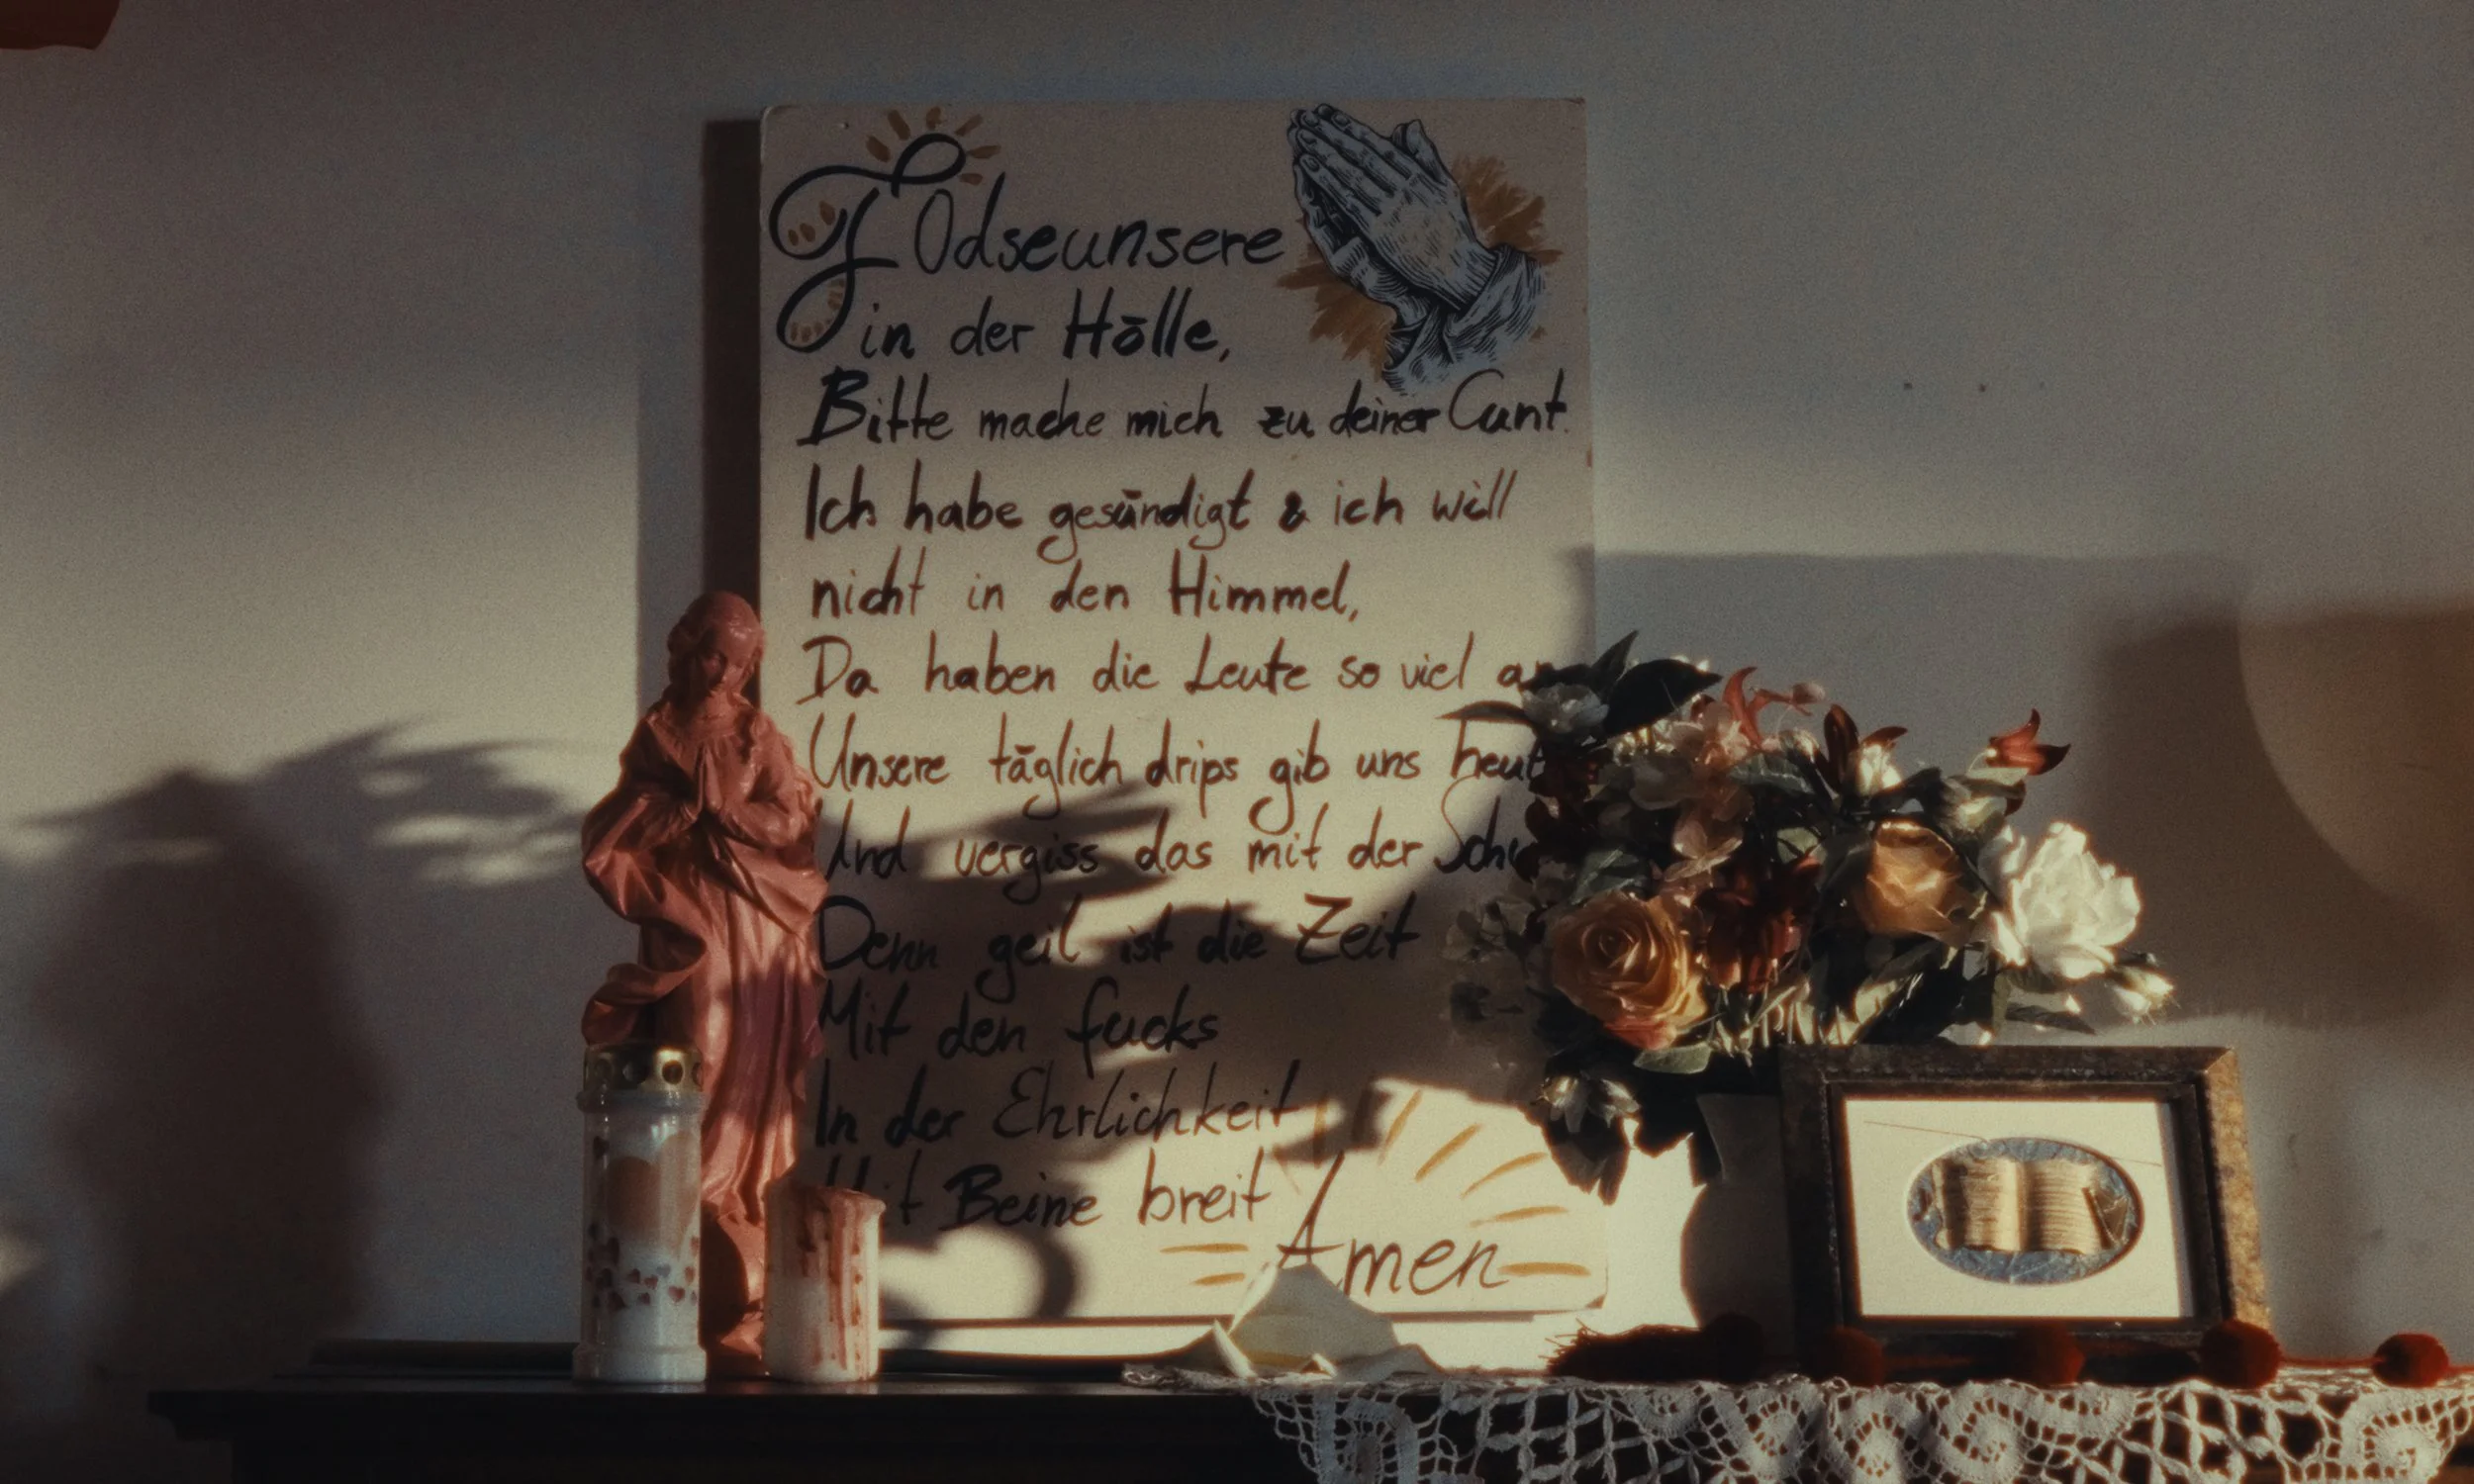 Fodseunsere
in der Hölle,
Bitte mache mich zu deiner Cunt.
Ich habe gesündigt & ich will
nicht in den Himmel,
Da haben die Leute so viel
Unsere täglich drips gib uns heut
Und vergiss das mit der
Denn geil ist die Zeit
Mit den fucks
In der Ehrlichkeit
Beine breit
Amen